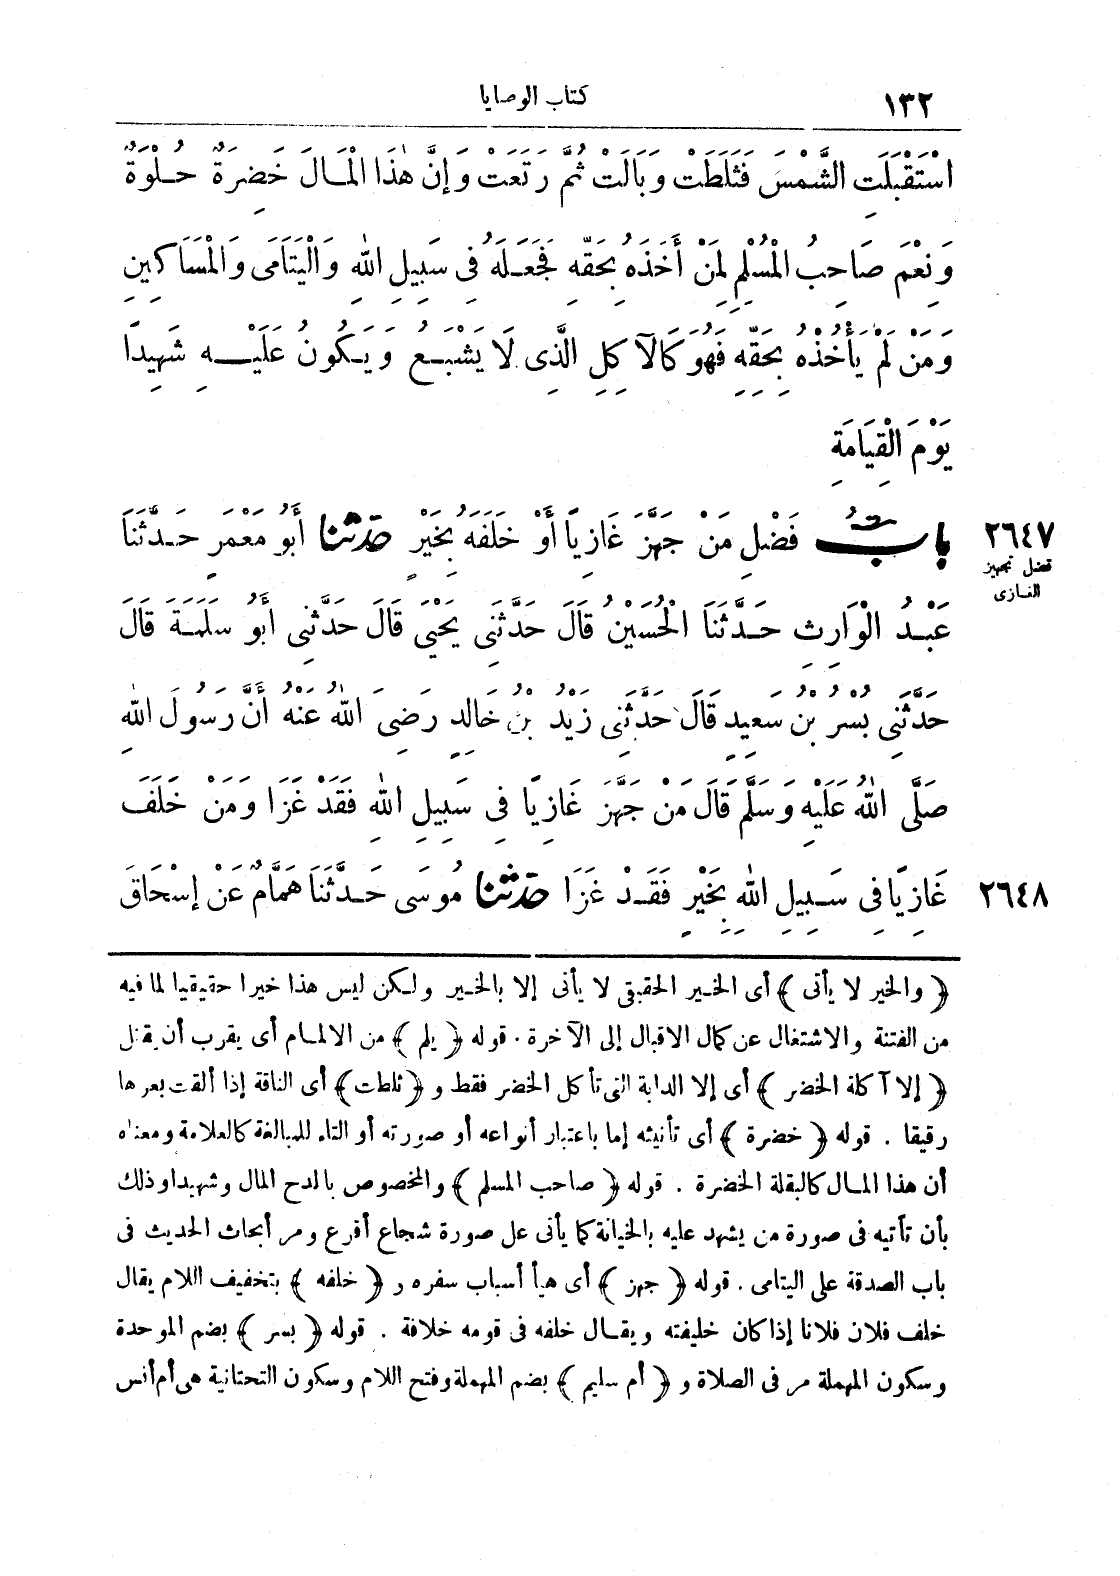 ١٣٢ كتاب الوصايا
اسْتَقْبَلَتِ الشَّمْسَ فَثَلَطَتْ وَبَالَتْ ثُمَّ رَتَعَتْ وَإِنَّ هٰذَا الْمَالَ خَضِرَةٌ حُلْوَةٌ
وَنِعْمَ صَاحِبُ الْمُسْلِمِ لِمَنْ أَخَذَهُ بِحَقِّهِ فَجَعَلَهُ فِى سَبِيلِ اللهِ وَالْيَتَامَى وَالْمَسَاكِينِ
وَمَنْ لَمْ يَأْخُذْهُ بِحَقِّهِ فَهُوَ كَالْآكِلِ الَّذِى لَا يَشْبَعُ وَيَكُونُ عَلَيْهِ شَهِيدًا
يَوْمَ الْقِيَامَةِ
٢٦٤٧ بابُ فَضْلِ مَنْ جَهَّزَ غَازِيًا أَوْ خَلَفَهُ بِخَيْرٍ حدثنا أَبُو مَعْمَرٍ حَدَّثَنَا
فضل تجهيز
الغازى
عَبْدُ الْوَارِثِ حَدَّثَنَا الْحُسَيْنُ قَالَ حَدَّثَنِى يَحْيَى قَالَ حَدَّثَنِى أَبُو سَلَمَةَ قَالَ
حَدَّثَنِى بُسْرُ بْنُ سَعِيدٍ قَالَ حَدَّثَنِى زَيْدُ بْنُ خَالِدٍ رَضِىَ اللهُ عَنْهُ أَنَّ رَسُولَ اللهِ
صَلَّى اللهُ عَلَيْهِ وَسَلَّمَ قَالَ مَنْ جَهَّزَ غَازِيًا فِى سَبِيلِ اللهِ فَقَدْ غَزَا وَمَنْ خَلَفَ
٢٦٤٨ غَازِيًا فِى سَبِيلِ اللهِ بِخَيْرٍ فَقَدْ غَزَا حدثنا مُوسَى حَدَّثَنَا هَمَّامٌ عَنْ إِسْحَاقَ
﴿ والخير لا يأتى ﴾ أى الخير الحقيقى لا يأتى إلا بالخير ولكن ليس هذا خيرا حقيقيا لما فيه
من الفتنة والاشتغال عن كمال الاقبال إلى الآخرة . قوله ﴿ يلم ﴾ من الالمام أى يقرب أن يقتل
﴿ إلا آكلة الخضر ﴾ أى إلا الدابة التى تأكل الخضر فقط و ﴿ ثلطت ﴾ أى الناقة إذا ألقت بعرها
رقيقا . قوله ﴿ خضرة ﴾ أى تأنيثه إما باعتبار أنواعه أو صورته أو التاء للمبالغة كالعلامة ومعناه
أن هذا المال كالبقلة الخضرة . قوله ﴿ صاحب المسلم ﴾ والمخصوص بالمدح المال وشهيدا وذلك
بأن تأتيه فى صورة من يشهد عليه بالخيانة كما يأتى على صورة شجاع أقرع ومر أبحاث الحديث فى
باب الصدقة على اليتامى . قوله ﴿ جهز ﴾ أى هيأ أسباب سفره و ﴿ خلفه ﴾ بتخفيف اللام يقال
خلف فلان فلانا إذا كان خليفته ويقال خلفه فى قومه خلافة . قوله ﴿ بسر ﴾ بضم الموحدة
وسكون المهملة مر فى الصلاة و ﴿ أم سليم ﴾ بضم المهملة وفتح اللام وسكون التحتانية هى أم أنس